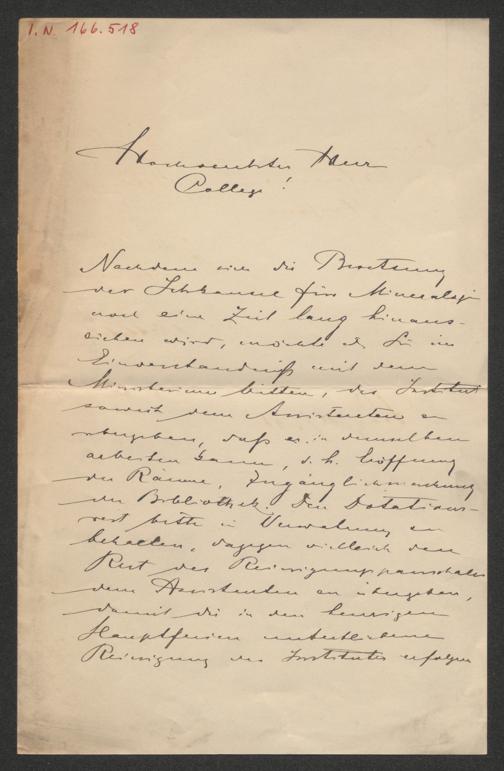 I.N. 166.518
Hochverehrter Herr
College!
Nachdem sich die Besetzung
der Lehrkanzel für Mineralogie
noch eine Zeit lang hinaus-
ziehen wird, möchte ich Sie im
Einverständniß mit dem
Ministerium bitten, das Institut
soweit dem Assistenten zu
übergeben, daß er in demselben
arbeiten kann, d. h. Eröffnung
der Räume, Zugänglichmachung
der Bibliothek. Den Dotations-
rest bitte in Verwahrung zu
behalten, dagegen vielleicht den
Rest des Reinigungspauschales
dem Assistenten zu übergeben,
damit die in den heurigen
Hauptferien unterbliebene
Reinigung des Institutes erfolgen